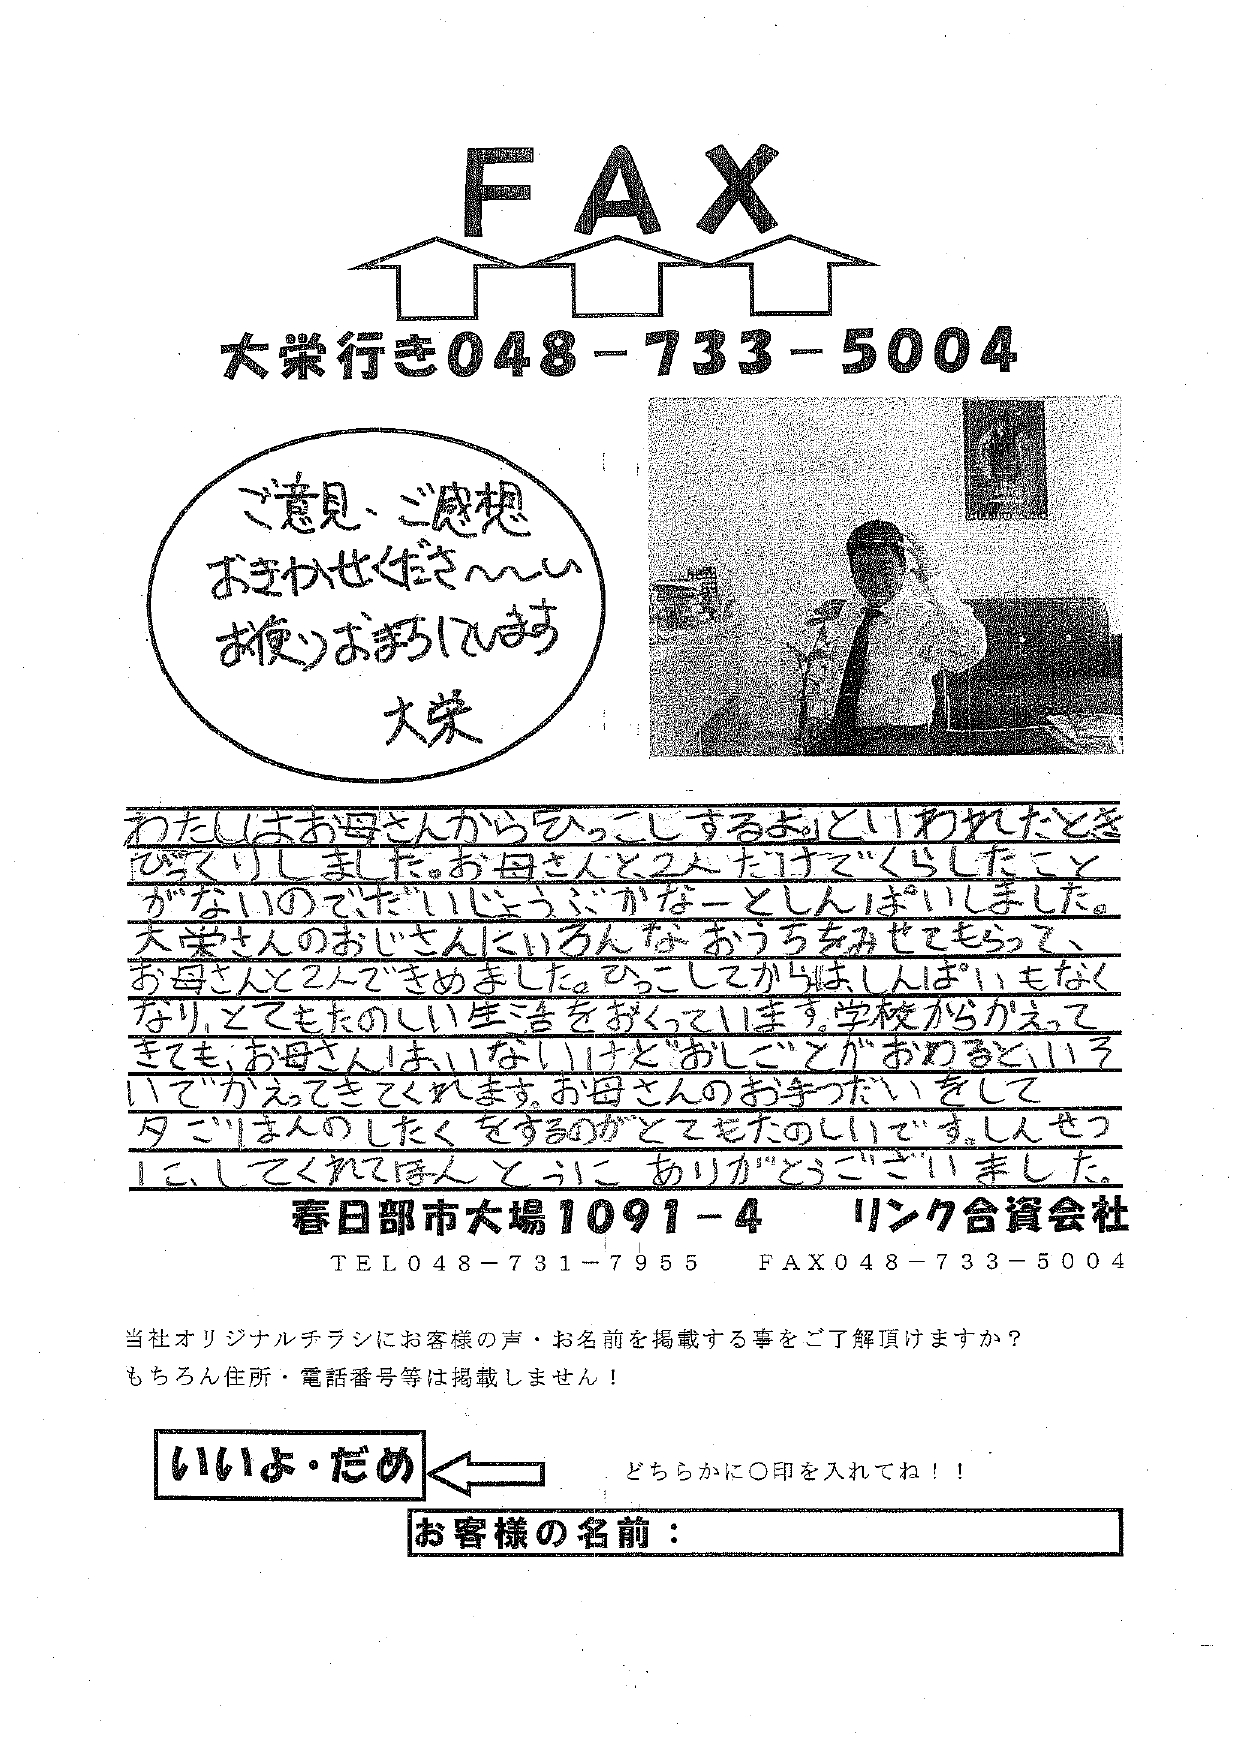 FAX
大栄行き048－733－5004
ご意見、ご感想
おきかせくださ〜〜い
お便りおまちしています
大栄
わたしはお母さんから「ひっこしするよ。」といわれたとき
びっくりしました。お母さんと、2人だけでくらしたこと
がないので、だいじょうぶかなーとしんぱいしました。
大栄さんのおじさんにいろんなおうちをみせてもらって、
お母さんと2人できめました。ひっこしてからは、しんぱいもなく
なり、とてもたのしい生活をおくっています。学校からかえって
きても、お母さんは、いないけどおしごとがおわると、いそ
いでかえってきてくれます。お母さんのお手つだいをして
夕ごはんのしたくをするのがとてもたのしいです。しんせつ
に、してくれてほんとうにありがとうございました。
春日部市大場1091－4　リンク合資会社
TEL048－731－7955　FAX048－733－5004
当社オリジナルチラシにお客様の声・お名前を掲載する事をご了解頂けますか？
もちろん住所・電話番号等は掲載しません！
いいよ・だめ　どちらかに〇印を入れてね！！
お客様の名前：